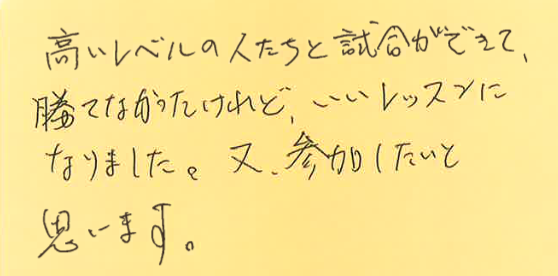 高いレベルの人たちと試合ができて、
勝てなかったけれど、いいレッスンに
なりました。又、参加したいと
思います。